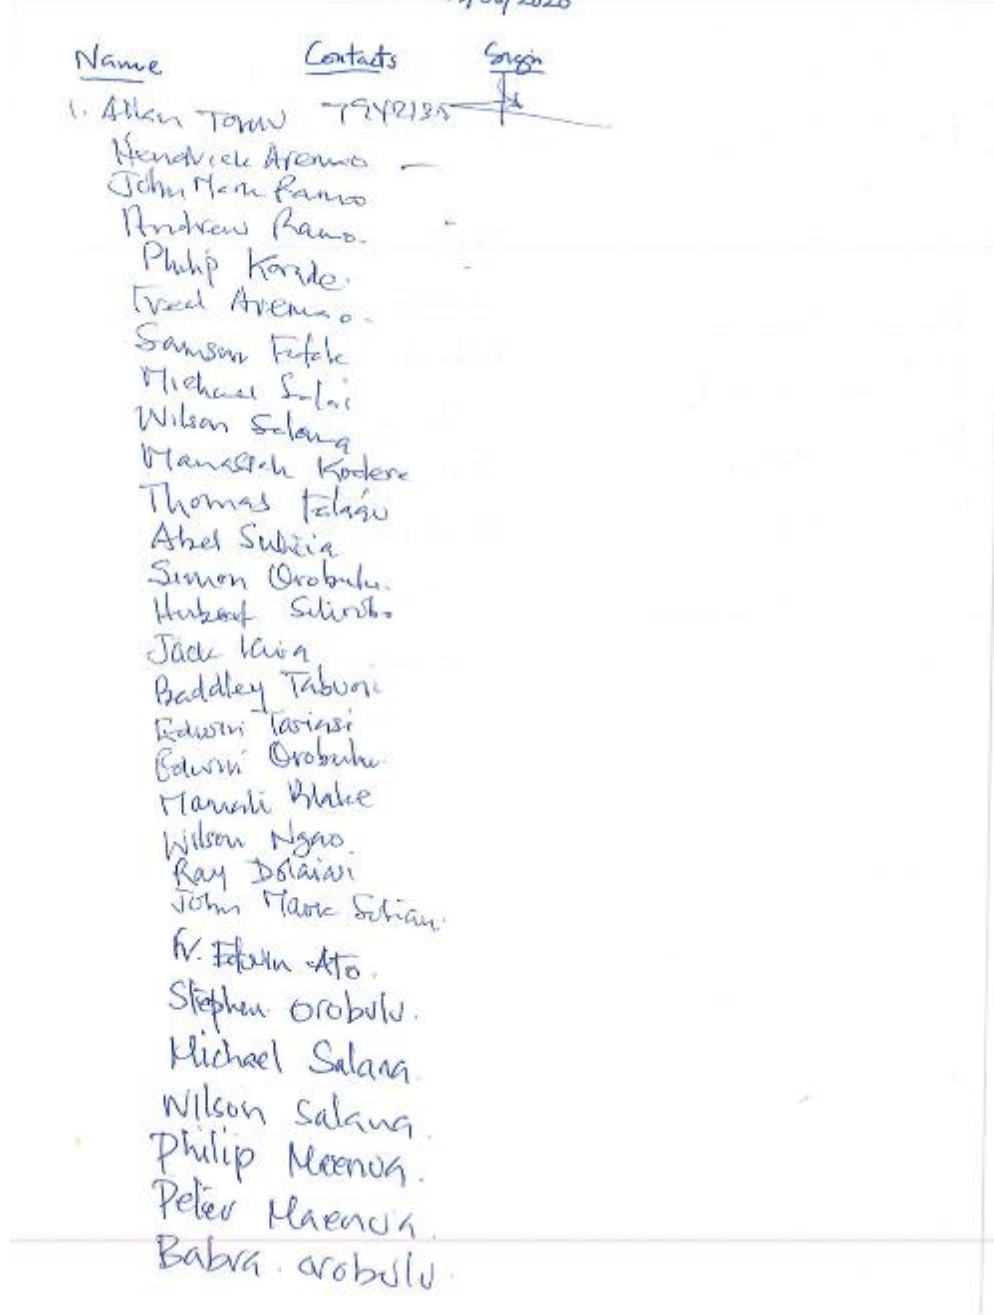 Name Contacts Sign
1. Allan Toruu 7942135
Hendrick Aremao —
John Mark Ramo
Andrew Ramo.
Philip Korude.
Fred Aremao.
Samson Fafale
Michael Salai
Wilson Salana
Manasseh Kodere
Thomas
Abel Subeia
Simon Orobulu.
Hubert
Jack Kaia
Baddley Taburi
Edwin Tasiasi
Edwin Orobulu
Blake
Wilson Ngao.
Ray Dolaiasi
John Mark
Fr. Edwin Ato.
Stephen Orobulu.
Michael Salana.
Wilson Salana.
Philip Meenua.
Peter Maenua.
Babra. orobulu.